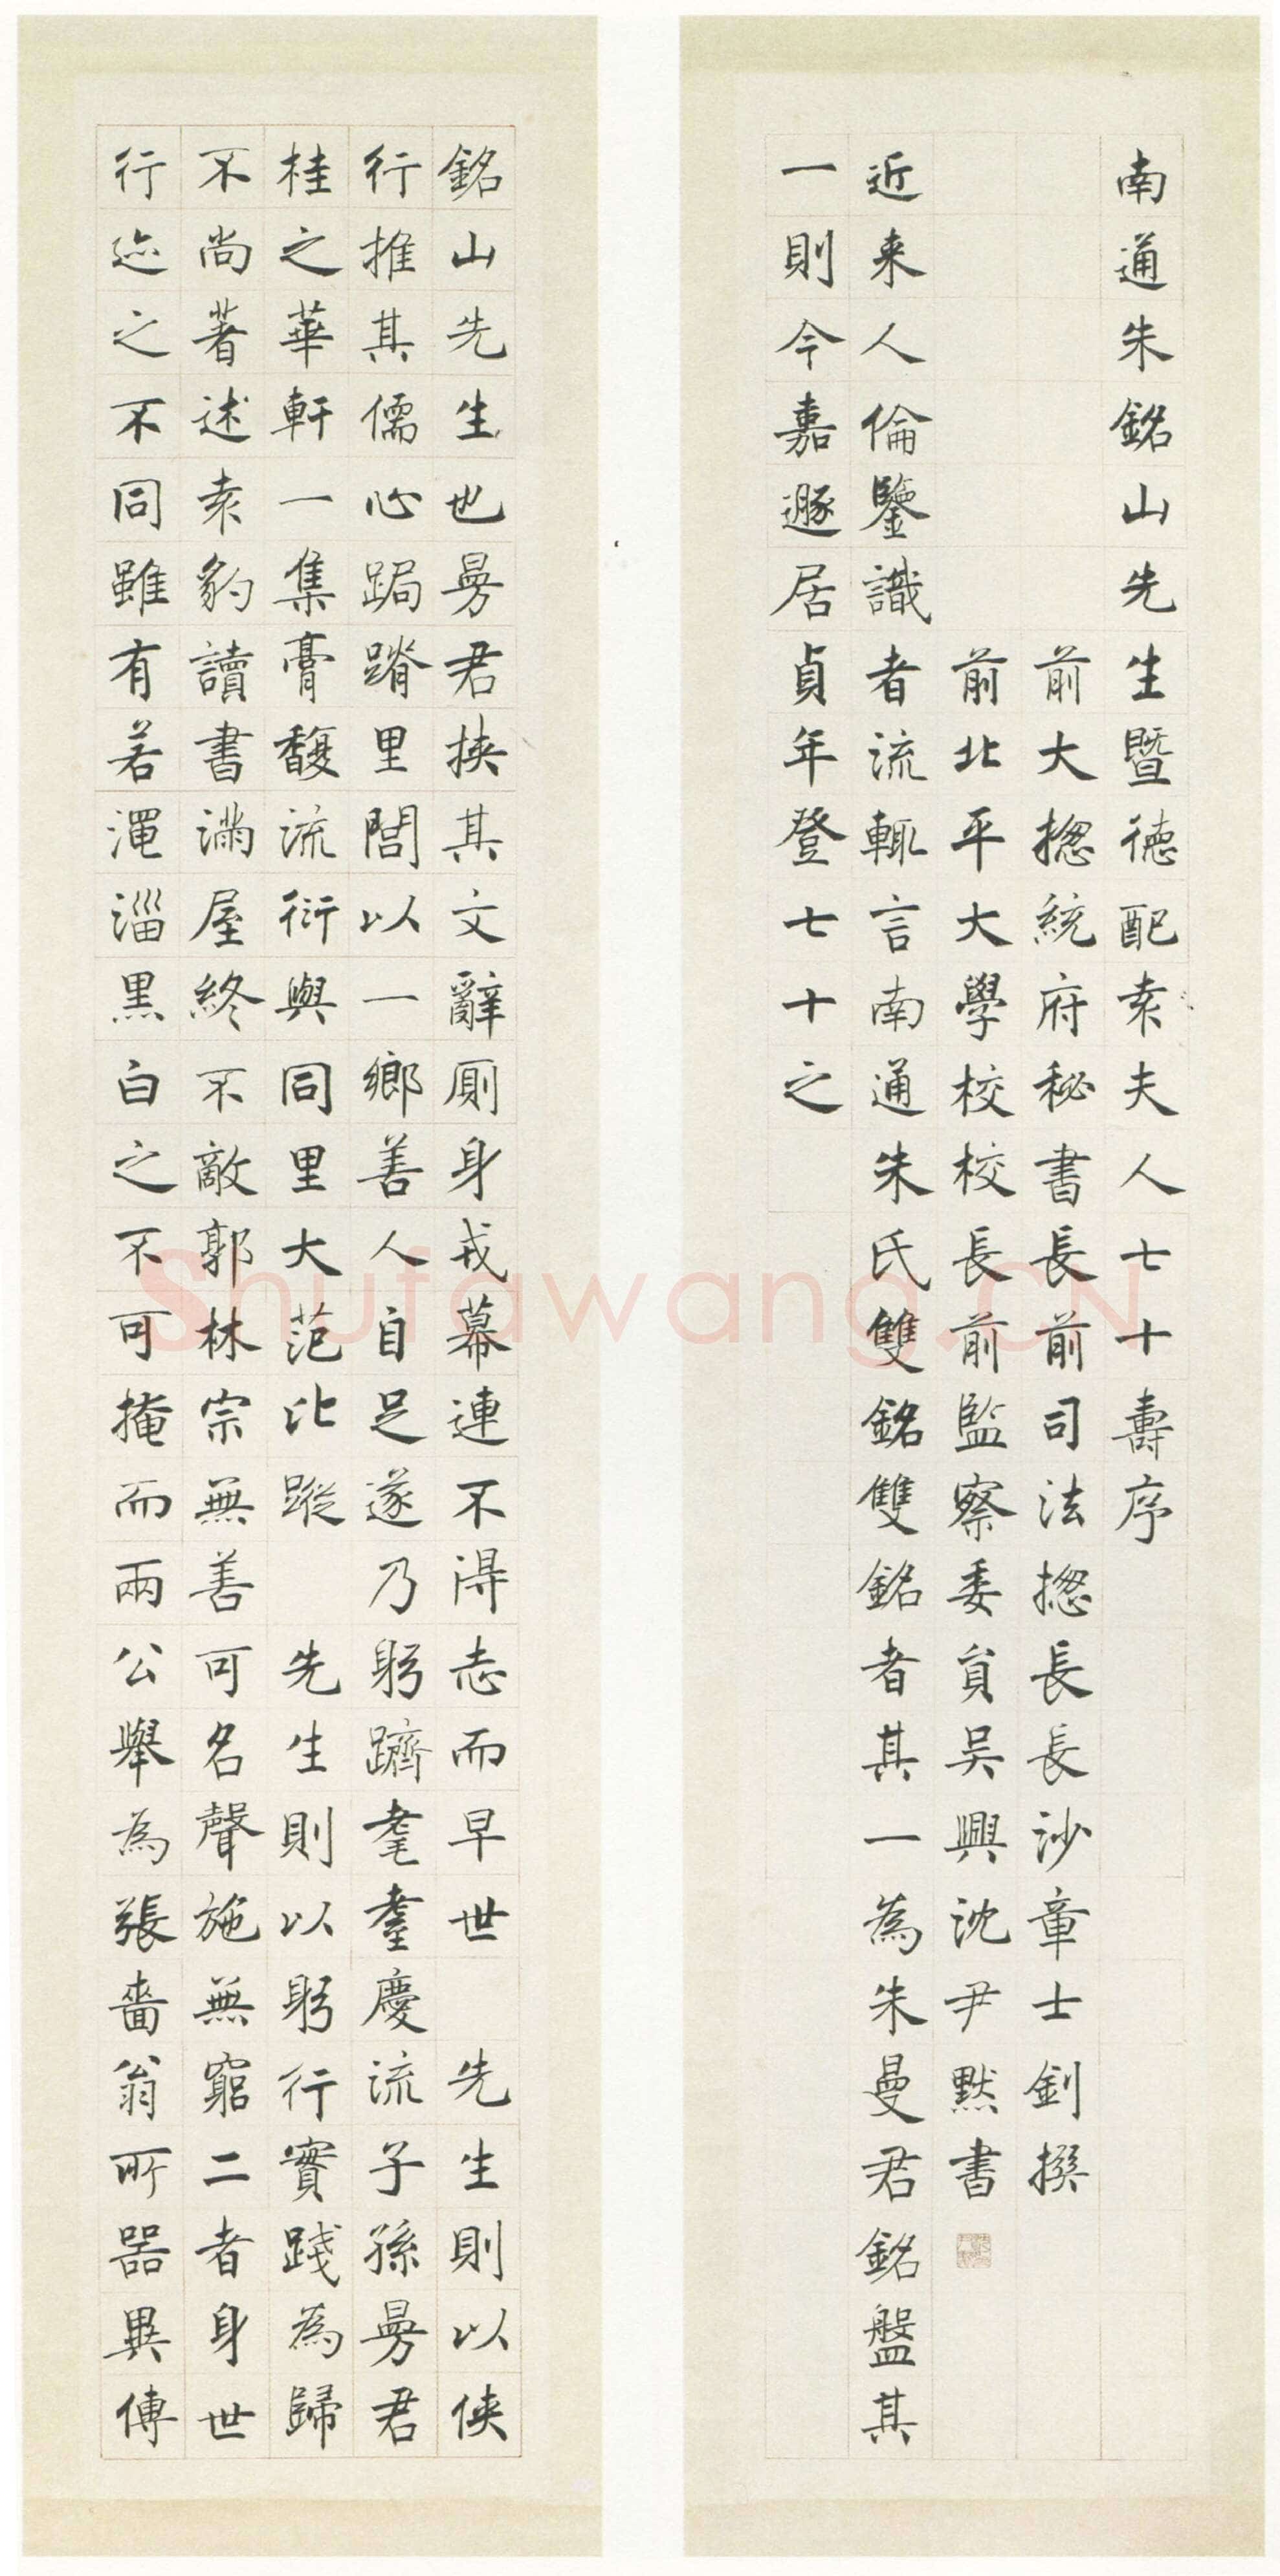 南通朱銘山先生暨德配袁夫人七十壽序
前大揔統府秘書長前司法揔長長沙章士釗撰
前北平大學校校長前監察委員吳興沈尹默書
近来人倫鑒識者流輒言南通朱氏雙銘雙銘者其一為朱曼君銘盤其
一則今嘉遯居貞年登七十之
銘山先生也曼君挾其文辭厠身戎幕連不得志而早世 先生則以俠
行推其儒心跼蹐里閭以一鄉善人自足遂乃躬躋耄耋慶流子孫曼君
桂之華軒一集膏馥流衍與同里大范比蹤 先生則以躬行實踐為歸
不尚著述袁豹讀書滿屋終不敵郭林宗無善可名聲施無窮二者身世
行迹之不同雖有若澠淄黑白之不可掩而兩公舉為張嗇翁所器異傳
Shufawang.CN